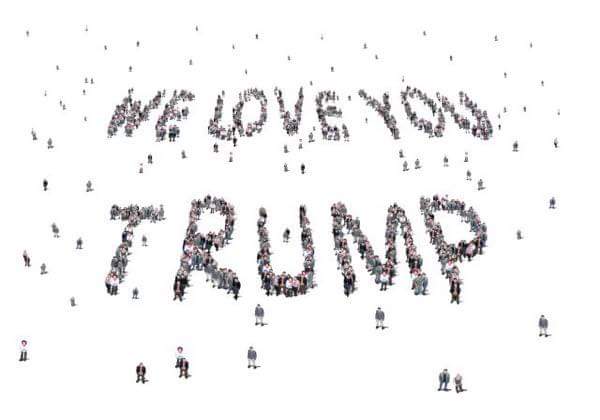 WE LOVE YOU
TRUMP